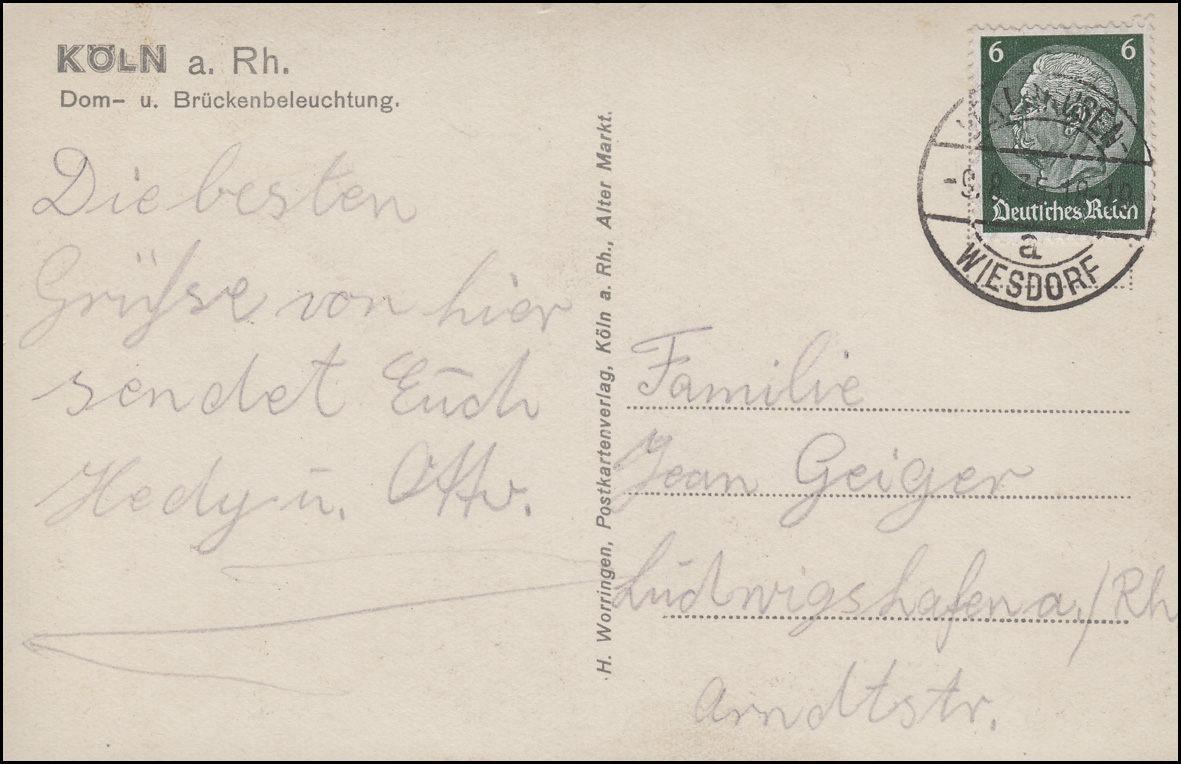 KÖLN a. Rh.
Dom- u. Brückenbeleuchtung.
Die besten
Grüsse von hier
sendet Euch
Hedy u. Otto.
H. Worringen, Postkartenverlag, Köln a. Rh., Alter Markt.
6 6
Deutsches Reich
LEVERKUSEN-
a
WIESDORF
Familie
Jean Geiger
Ludwigshafen a./Rh
Arndtstr.